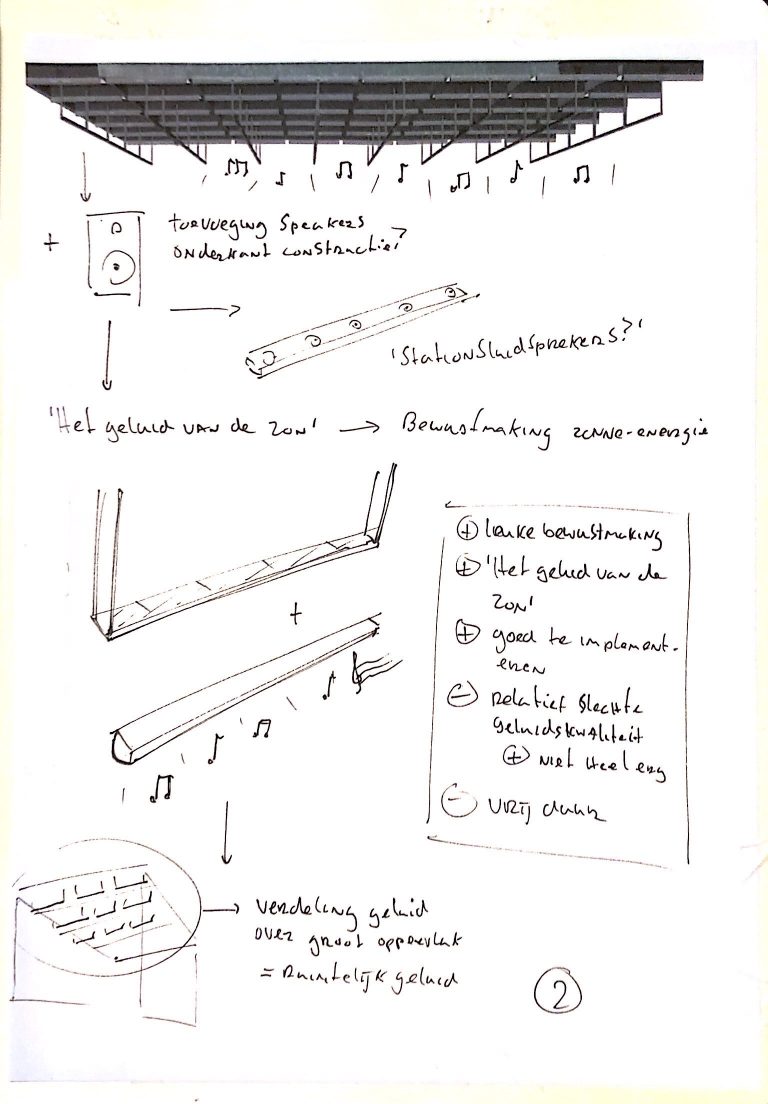 + toevoeging speakers
onderkant constructie?
'Stationsluidsprekers?'
'Het geluid van de zon' → Bewustmaking zonne-energie
+
⊕ leuke bewustmaking
⊕ 'Het geluid van de
zon'
⊕ goed te implement-
eren
⊖ relatief slechte
geluidskwaliteit
⊕ niet heel erg
⊖ vrij duur
→ verdeling geluid
over groot oppervlak
= ruimtelijk geluid
2